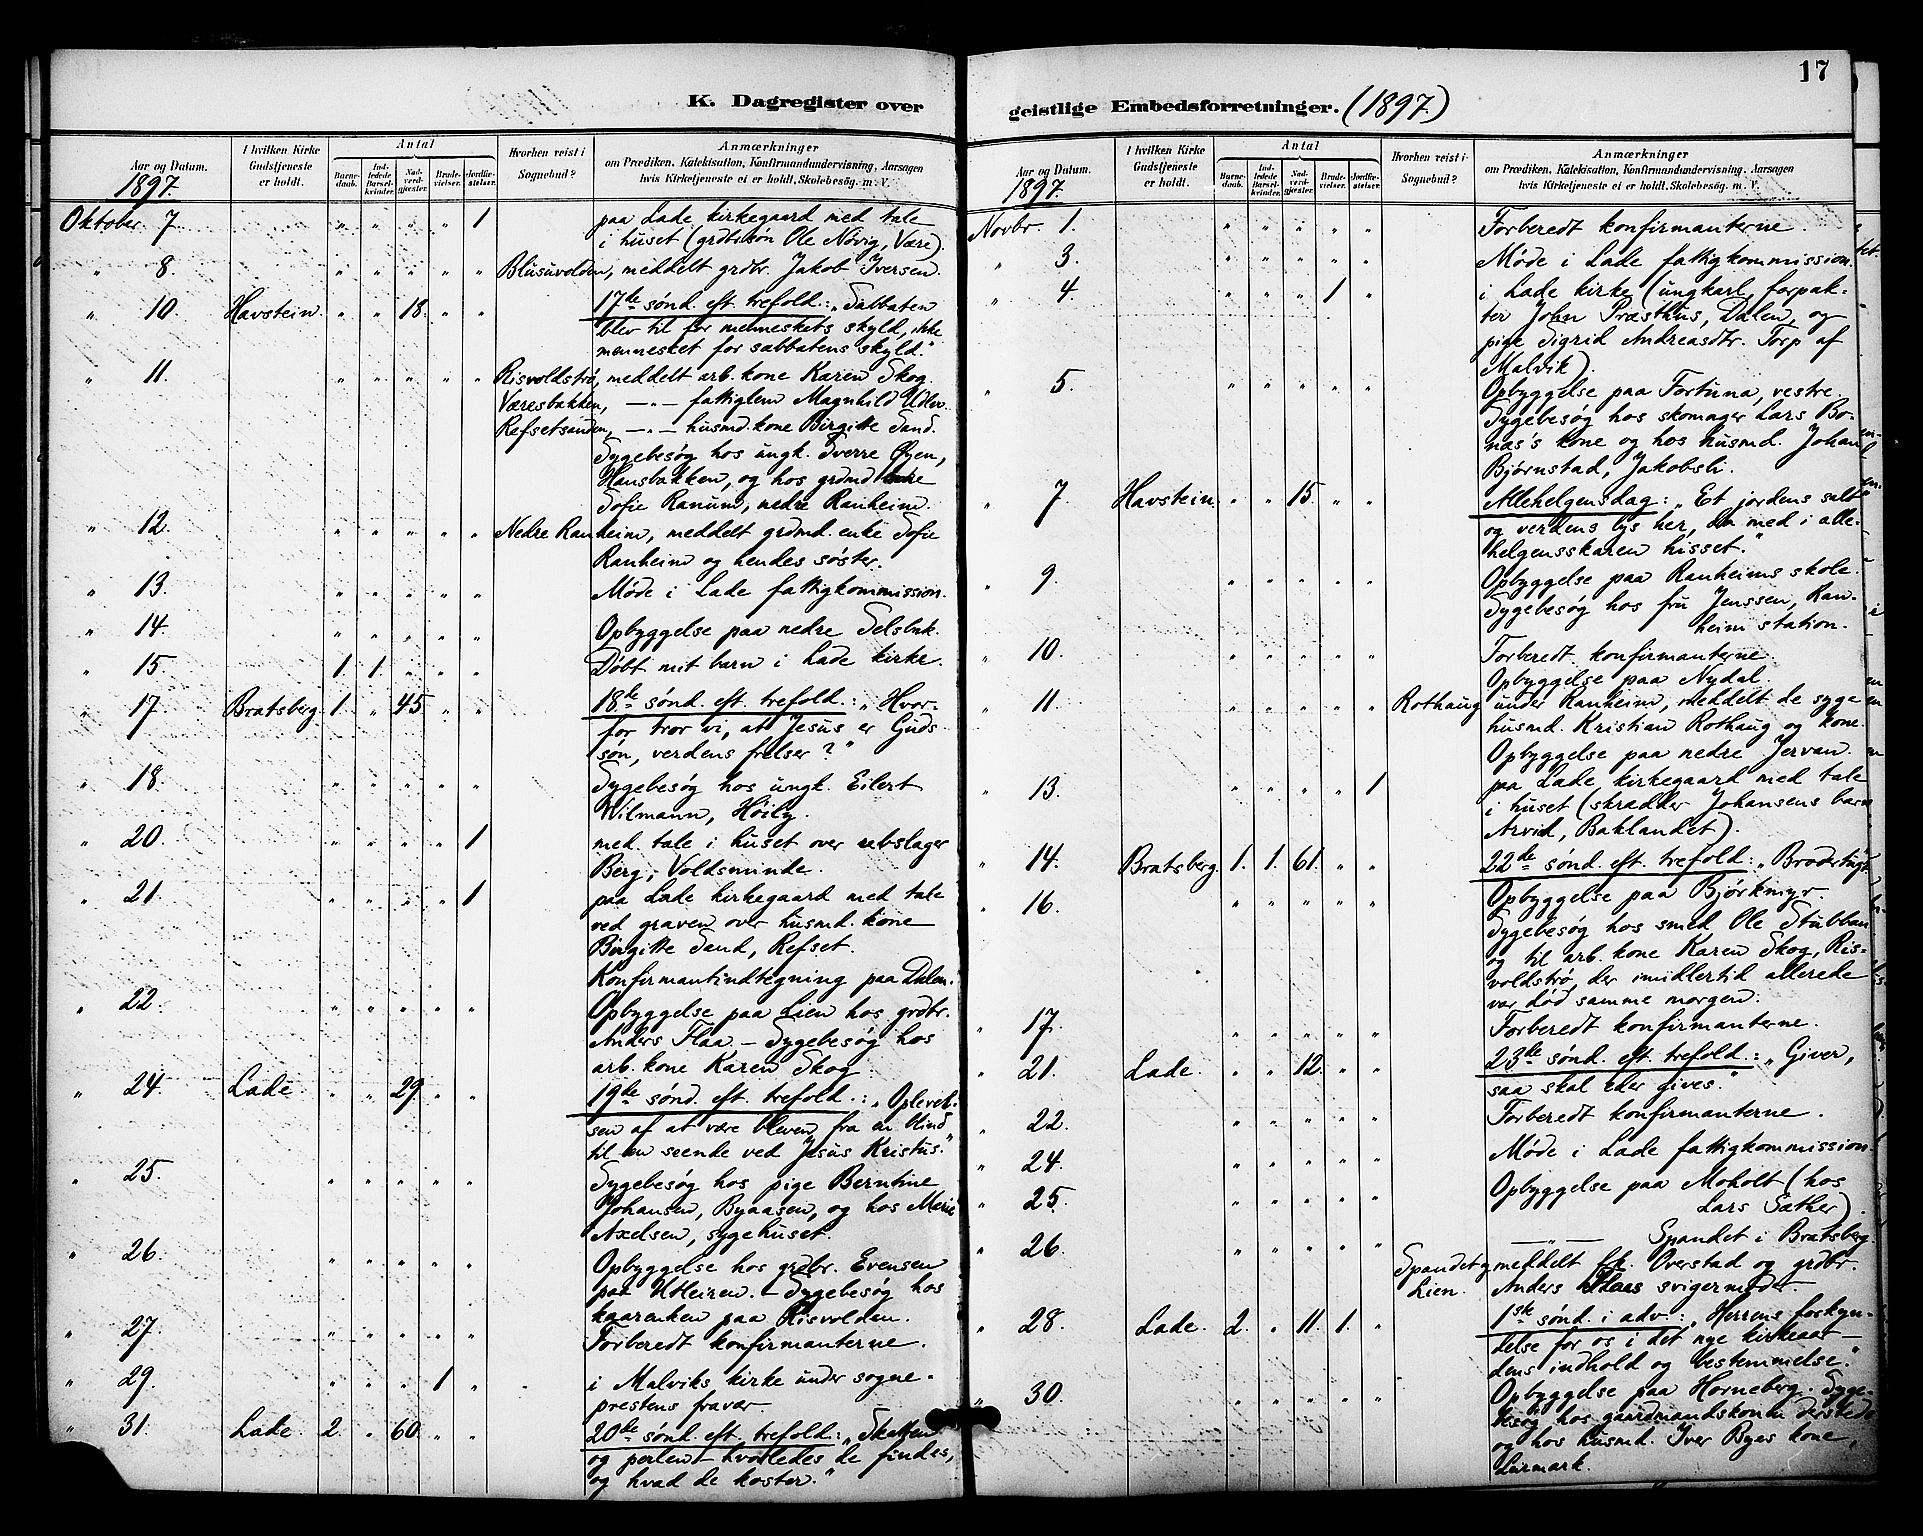 17
K. Dagregister over
Aar og Datum. I hvilken Kirke Gudstjeneste er holdt. Antal Barnedaab. Indledede Barselkvinder. Nadverdgjester. Brudevielser. Jordfæstelser. Hvorhen reist i Sognebud? Anmærkninger
om Prædiken, Katekisation, Konfirmandundervisning, Aarsagen
hvis Kirketjeneste ei er holdt, Skolebesøg. m. V.
1897.
Oktober 7. " " " " 1 paa Lade kirkegaard med tale
i huset (grdbr.søn Ole Növig, Være).
" 8. " " " " " Blusuvolden, meddelt grdbr. Jakob Iversen.
" 10. Havstein. " " 18. " " 17de sønd. eft. trefold.: „Sabbaten
blev til for menneskets skyld, ikke
mennesket for sabbatens skyld."
" 11. " " " " " Risvoldstrø, meddelt arb. kone Karen Skog.
Væresbakken, —"— fattiglem Magnhild
Refsetsanden, —"— husmd. kone Birgitte Sand.
Sygebesøg hos ungk. Sverre Øyen,
Hansbakken, og hos grdmd. enke
Sofie Ranum, nedre Ranheim.
" 12. " " " " " Nedre Ranheim, meddelt grdmd. enke Sofie
Ranheim og hendes søster.
" 13. " " " " " Møde i Lade fattigkommission.
" 14. " " " " " Opbyggelse paa nedre Selsbak.
" 15. 1. 1. " " " Døbt mit barn i Lade kirke.
" 17. Bratsberg. 1. " 45. " " 18de sønd. eft. trefold.: „Hvor-
for tror vi, at Jesus er Guds
søn, verdens frelser?"
" 18. " " " " " Sygebesøg hos ungk. Eilert
Wilmann, Høily.
" 20. " " " " 1 med tale i huset over rebslager
Berg, Voldsminde.
" 21. " " " " 1 paa Lade kirkegaard med tale
ved graven over husmd. kone
Birgitte Sand, Refset.
Konfirmantindtegning paa Dalen.
" 22. " " " " " Opbyggelse paa Lien hos grdbr.
Anders Flaa. – Sygebesøg hos
arb. kone Karen Skog.
" 24. Lade. " " 29. " " 19de sønd. eft. trefold.: „Oplevel-
sen af at være bleven fra en blind
til en seende ved Jesus Kristus."
" 25. " " " " " Sygebesøg hos pige Berntine
Johansen, Byaasen, og hos Marie
Axelsen, sygehuset.
" 26. " " " " " Opbyggelse hos grdbr. Evensen
paa Utleiren. – Sygebesøg hos
kaarenken paa Risvolden.
" 27. " " " " " Forberedt konfirmanterne.
" 29. " " " 1 " i Malviks kirke under sogne-
prestens fravær.
" 31. Lade. 2. " 60. " " 20de sønd. eft. trefold.: „Skatten
og perlen – hvorledes de findes,
og hvad de koster."
geistlige Embedsforretninger. (1897.)
Aar og Datum. I hvilken Kirke Gudstjeneste er holdt. Antal Barnedaab. Indledede Barselkvinder. Nadverdgjester. Brudevielser. Jordfæstelser. Hvorhen reist i Sognebud? Anmærkninger
om Prædiken, Katekisation, Konfirmandundervisning, Aarsagen
hvis Kirketjeneste ei er holdt, Skolebesøg. m. V.
1897.
Novbr. 1. " " " " " Forberedt konfirmanterne.
" 3. " " " " " Møde i Lade fattigkommission.
" 4. " " " 1 " i Lade kirke (ungkarl, forpak-
ter John Præsthus, Dalen, og
pige Sigrid Andreasdtr. Torp af
Malvik).
" 5. " " " " " Opbyggelse paa Fortuna, vestre.
Sygebesøg hos skomager Lars Bo-
nas's kone og hos husmd. Johan
Bjørnstad, Jakobsli.
" 7. Havstein. " " 15. " " Allehelgensdag: „Et jordens salt
og verdens lys her, da med i alle-
helgensskaren hisset."
" 9. " " " " " Opbyggelse paa Ranheims skole.
Sygebesøg hos fru Jenssen, Ran-
heim station.
" 10. " " " " " Forberedt konfirmanterne.
Opbyggelse paa Nydal.
" 11. " " " " " Rothaug under Ranheim, meddelt de syge
husmd. Kristian Rothaug og kone.
Opbyggelse paa nedre Jervan.
" 13. " " " " 1 paa Lade kirkegaard med tale
i huset (skrædder Johansens barn
Arvid, Baklandet).
" 14. Bratsberg. 1. 1. 61. " " 22de sønd. eft. trefold.:
" 16. " " " " " Opbyggelse paa Bjørkmyr.
Sygebesøg hos smed Ole Stubban
og til arb. kone Karen Skog, Ris-
voldstrø, der imidlertid allerede
var død samme morgen.
" 17. " " " " " Forberedt konfirmanterne.
" 21. Lade. " " 12. " " 23de sønd. eft. trefold.: „Giver,
saa skal eder gives."
" 22. " " " " " Forberedt konfirmanterne.
" 24. " " " " " Møde i Lade fattigkommission.
" 25. " " " " " Opbyggelse paa Moholt (hos
Lars Sæther).
" 26. " " " " " —"— Spandet i Bratsberg.
Spandet og meddelt frk. Overstad og grdbr.
Lien. Anders Flaas svigermoder.
" 28. Lade. 2. " 11. 1. " 1ste sønd. i adv.: „Herrens forkyn-
delse for os i det nye kirkeaar –
dens indhold og bestemmelse."
" 30. " " " " " Opbyggelse paa Horneberg. Syge-
besøg hos gaardmandskonen dersteds
og hos husmd. Iver Byes kone,
Lurmark.